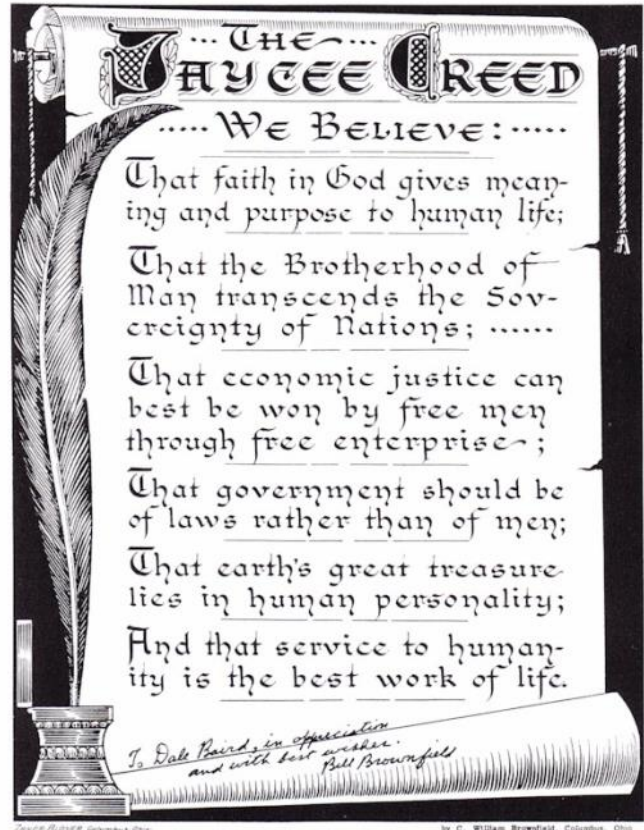 ...THE...
JAYCEE CREED
.....WE BELIEVE:.....
That faith in God gives mean-
ing and purpose to human life;
That the Brotherhood of
Man transcends the Sov-
ereignty of Nations; ......
That economic justice can
best be won by free men
through free enterprise;
That government should be
of laws rather than of men;
That earth's great treasure
lies in human personality;
And that service to human-
ity is the best work of life.
To Dale Baird, in appreciation
and with best wishes.
Bill Brownfield
Columbus Ohio
by C. William Brownfield, Columbus, Ohio